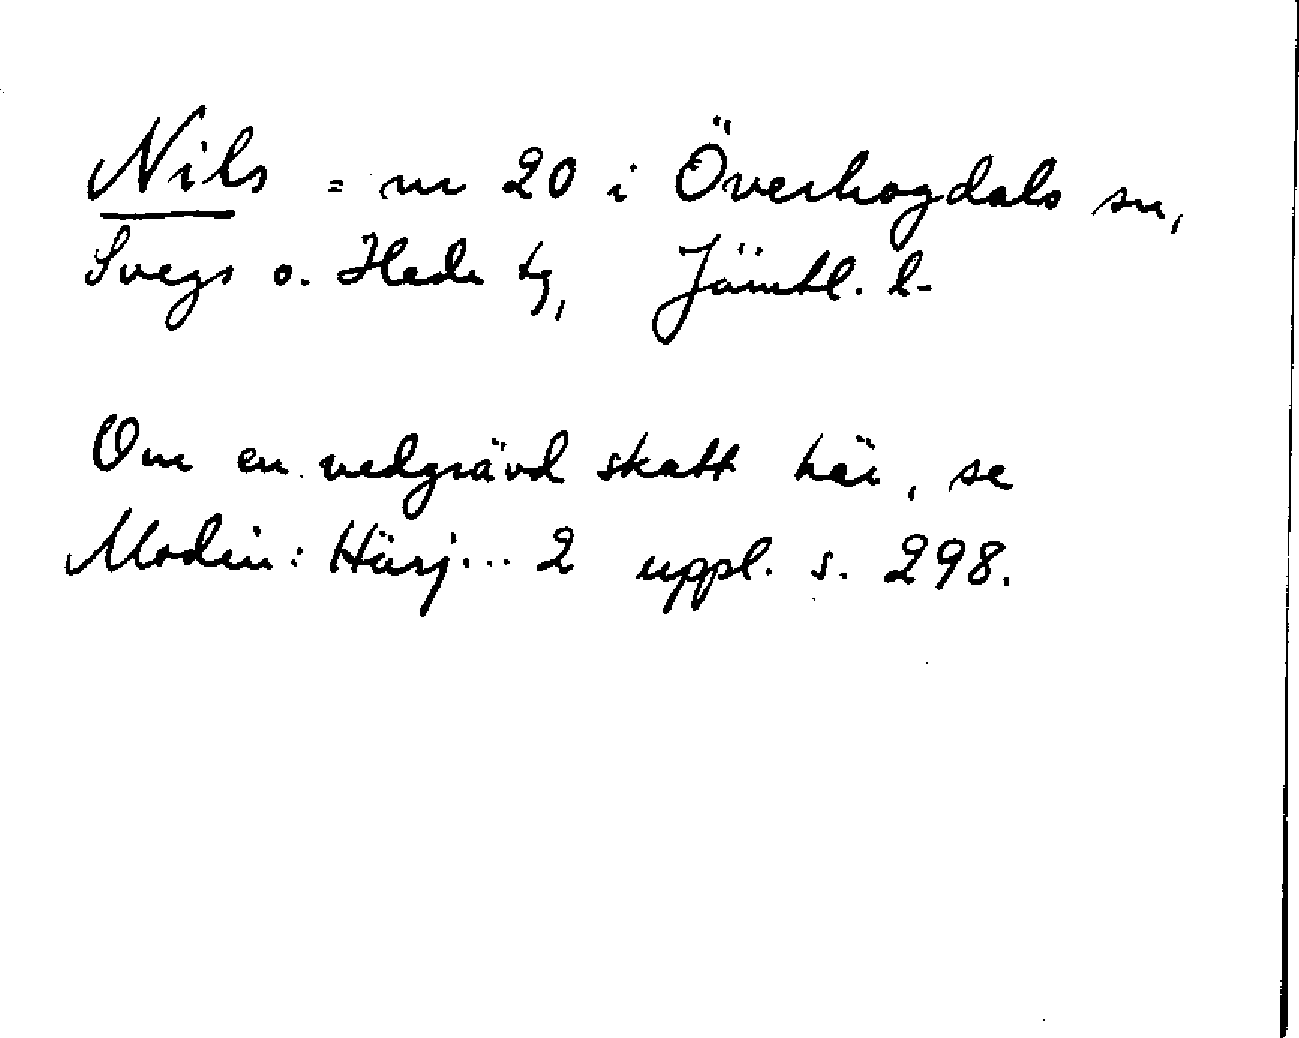 Nils = nr 20 i Överhogdals sn,
Svegs o. Hede tg, Jämtl. l.
Om en nedgrävd skatt här, se
Modin: Härj... 2 uppl. s. 298.